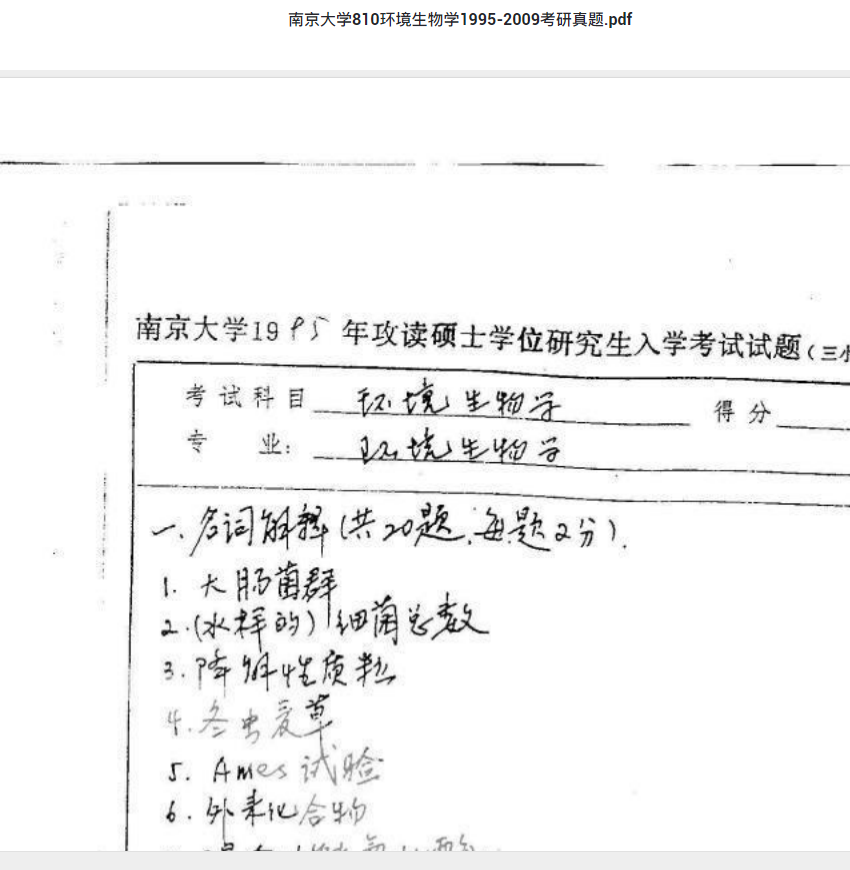 南京大学810环境生物学1995-2009考研真题.pdf
南京大学1995年攻读硕士学位研究生入学考试试题(三小
考试科目 环境生物学 得分
专 业: 环境生物学
一、名词解释(共20题,每题2分).
1. 大肠菌群
2.(水样的)细菌总数
3. 降解性质粒
4. 冬虫夏草
5. Ames 试验
6. 外来化合物